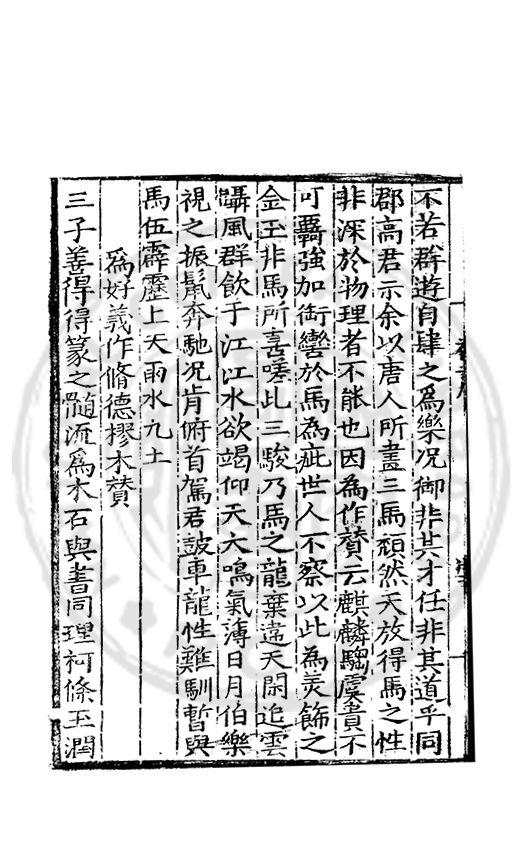 不若群遊自肆之為樂况御非其才任非其道乎同
郡高君示余以唐人所畫三馬頹然天放得馬之性
非深於物理者不能也因為作賛云麒麟騶虞貴不
可羈強加銜轡於馬為疵世人不察以此為美飾之
金玉非馬所喜嗟此三駿乃馬之龍棄違天閑追雲
躡風群飲于江江水欲竭仰天大鳴氣薄日月伯樂
視之振鬛奔馳况肯俯首駕君鼓車龍性難馴暫與
馬伍霹靂上天雨水九土
為好義作脩德樛木賛
三子善得得篆之髓流為木石與書同理柯條玉潤